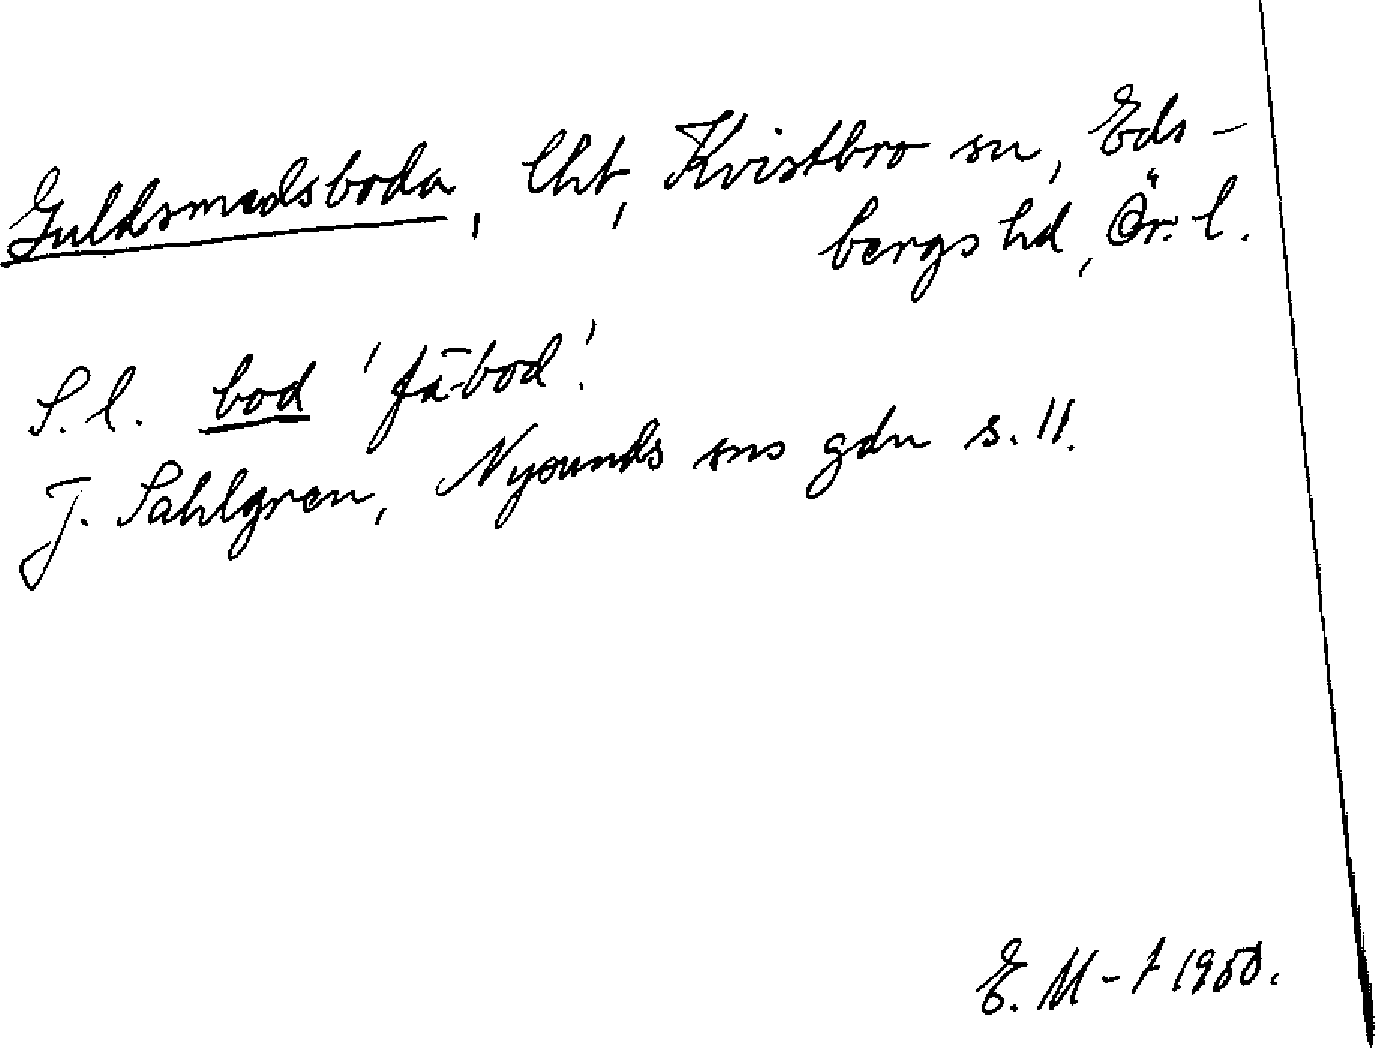 Guldsmedsboda, lht, Kvistbro sn, Eds-
bergs hd, Ör. l.
S.l. bod 'fä-bod'.
J. Sahlgren, Nysunds sns gdn s. 11.
E. M-t 1950.